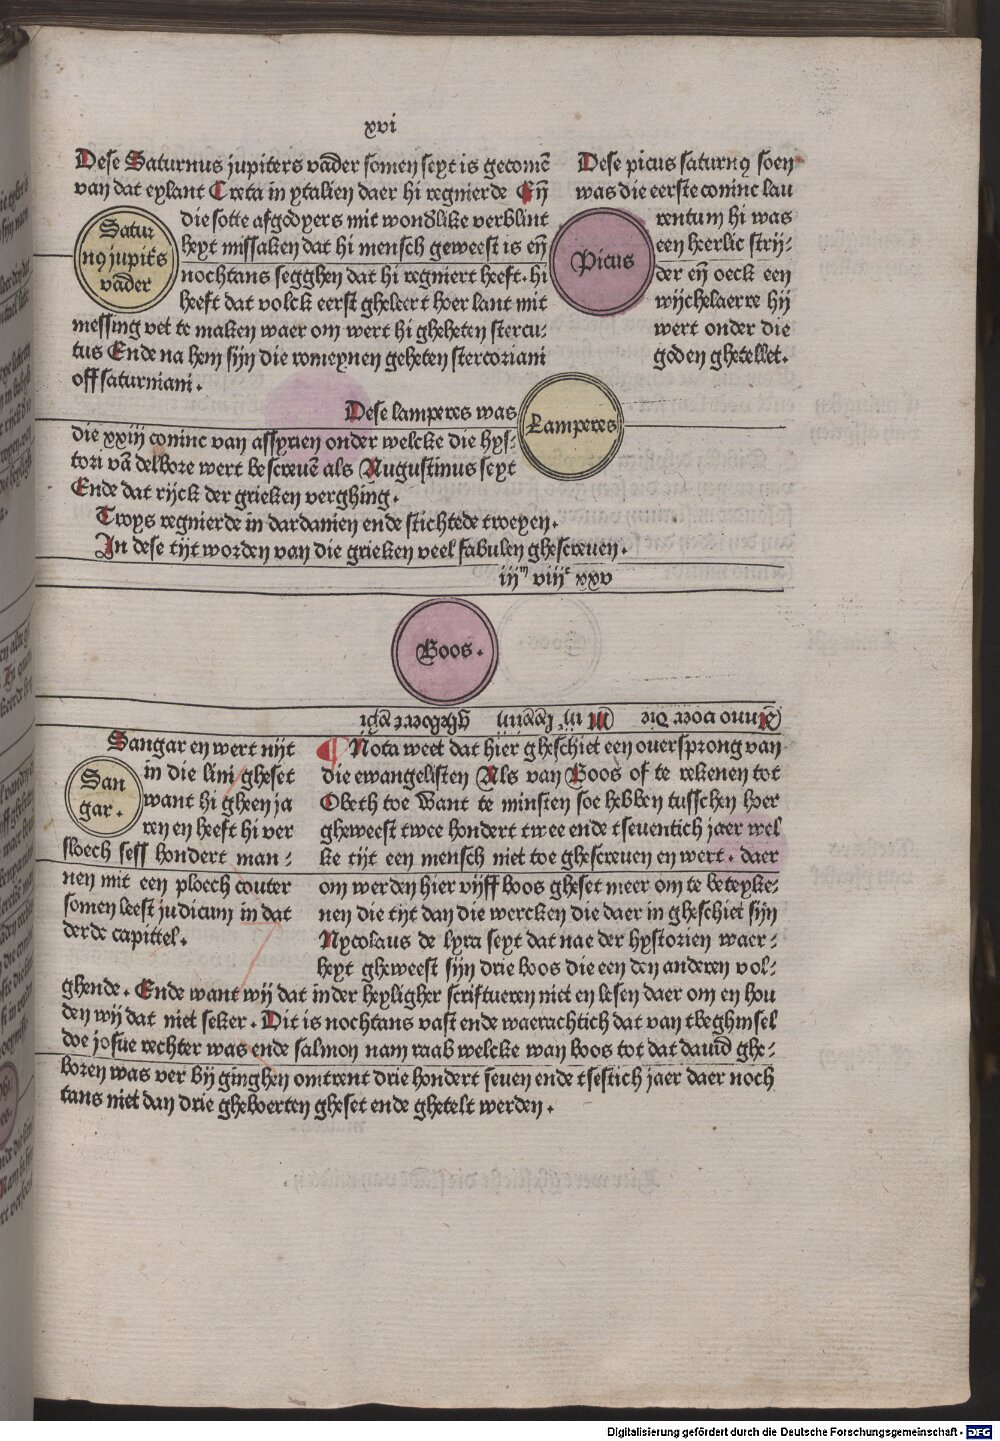 xvi
Dese Saturnus jupiters vader somen seyt is gecomē
van dat eylant Creta in ytalien daer hi regnierde Eñ
die sotte afgodyers mit wondlike verblint
heyt missaken dat hi mensch geweest is eñ
nochtans segghen dat hi regniert heeft. hi
heeft dat volck eerst gheleert hoer lant mit
messing vet te maken waer om wert hi gheheten stercu-
tus Ende na hem sijn die romeynen geheten stercoriani
off saturniani.
Satur
nꝯ jupiťs
vader
Dese picus saturnꝯ soen
was die eerste coninc lau
rentum hi was
een heerlic strij-
der eñ oeck een
wijchelaerre hij
wert onder die
goden ghetellet.
Picus
Dese lamperes was
die xxiij coninc van assyrien onder welcke die hys-
tori vā delbore wert bescreuē als Augustinus seyt
Ende dat rijck der grieken verghing.
Lamperes
Troys regnierde in dardanien ende stichtede troeyen.
In dese tijt worden van die grieken veel fabulen ghescreuen.
iijᵐ viijᶜ xxv
Boos.
Anno voer die
Gheboert
Sangar en wert nijt
in die lini gheset
want hi gheen ja
ren en heeft hi ver
sloech sess hondert man-
nen mit een ploech couter
somen leest judicum in dat
derde capittel.
San
gar.
Nota weet dat hier gheschiet een ouersprong van
die ewangelisten Als van Boos of te rekenen tot
Obeth toe Want te minsten soe hebben tusschen hoer
gheweest twee hondert twee ende tseuentich jaer wel
ke tijt een mensch niet toe ghescreuen en wert. daer
om werden hier vijff boos gheset meer om te beteyke-
nen die tijt dan die wercken die daer in gheschiet sijn
Nycolaus de lyra seyt dat nae der hystorien waer-
heyt gheweest sijn drie boos die een den anderen vol-
ghende. Ende want wij dat in der heyligher scriftueren niet en lesen daer om en hou
den wij dat niet seker. Dit is nochtans vast ende waerachtich dat van tbeghinsel
doe josue rechter was ende salmon nam raab welcke wan boos tot dat dauid ghe-
boren was ver bij ginghen omtrent drie hondert seuen ende tsestich jaer daer noch
tans niet dan drie gheboerten gheset ende ghetelt werden.
Digitalisierung gefördert durch die Deutsche Forschungsgemeinschaft - DFG